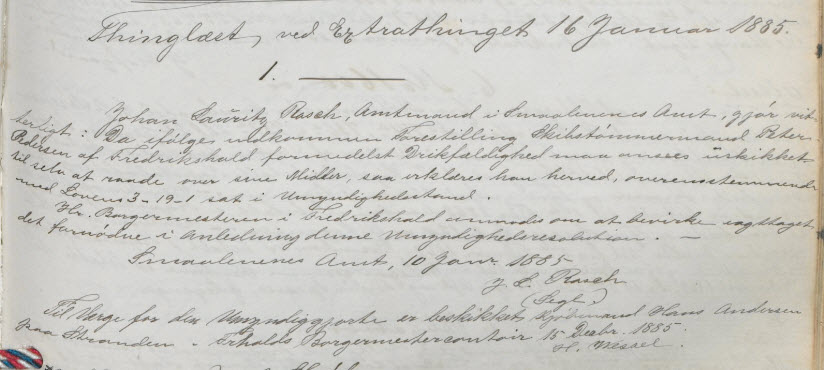 Thinglæst, ved Extrathinget 16 Januar 1885.
1.
Johan Lauritz Rasch, Amtmand i Smaalenenes Amt, gjør vit-
terligt: Da ifølge indkommen Forestilling Skibstømmermand Peter
Pedersen af Fredrikshald formedelst Drikfældighed maa ansees uskikket
til selv at raade over sine Midler, saa erklæres han herved, overensstemmende
med Lovens 3-19-1 sat i Umyndighedsstand.
Hr. Borgermesteren i Fredrikshald anmodes om at bevirke iagttaget
det fornødne i Anledning denne Umyndighedsresolution. —
Smaalenenes Amt, 10 Janr. 1885
J L. Rasch
(Segl)
Til Værge for den Umyndiggjorte er beskikket Kjøbmand Hans Andersen
paa Stranden - Frhalds Borgermestercontoir 15 Decbr. 1885.
H. Wessel.